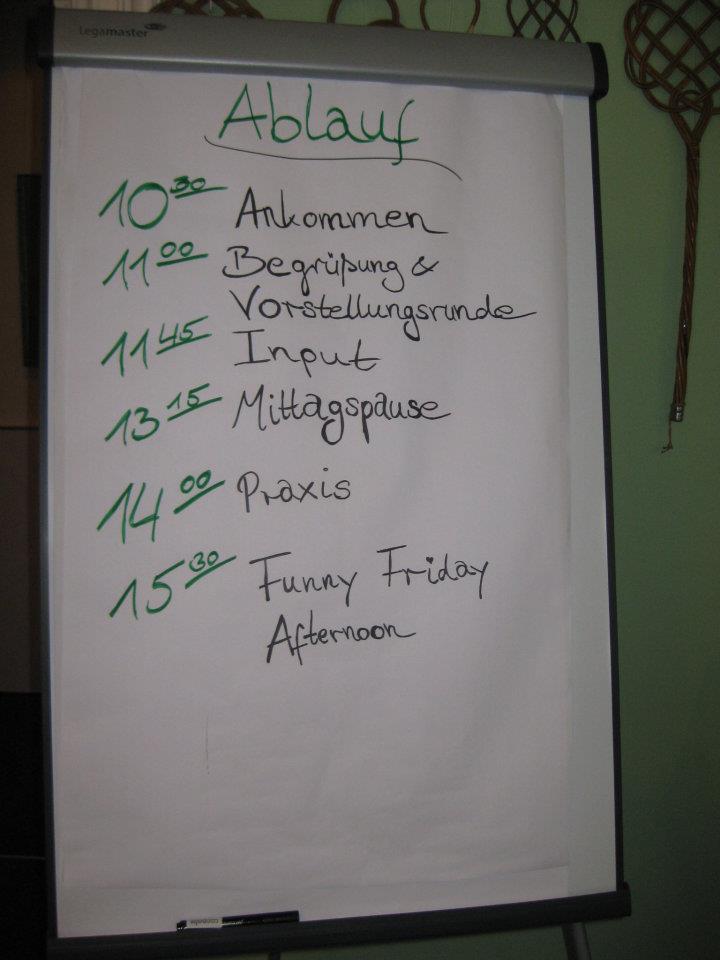 Legamaster
Ablauf
10 30 Ankommen
11 00 Begrüßung &
Vorstellungsrunde
11 45 Input
13 15 Mittagspause
14 00 Praxis
15 30 Funny Friday
Afternoon